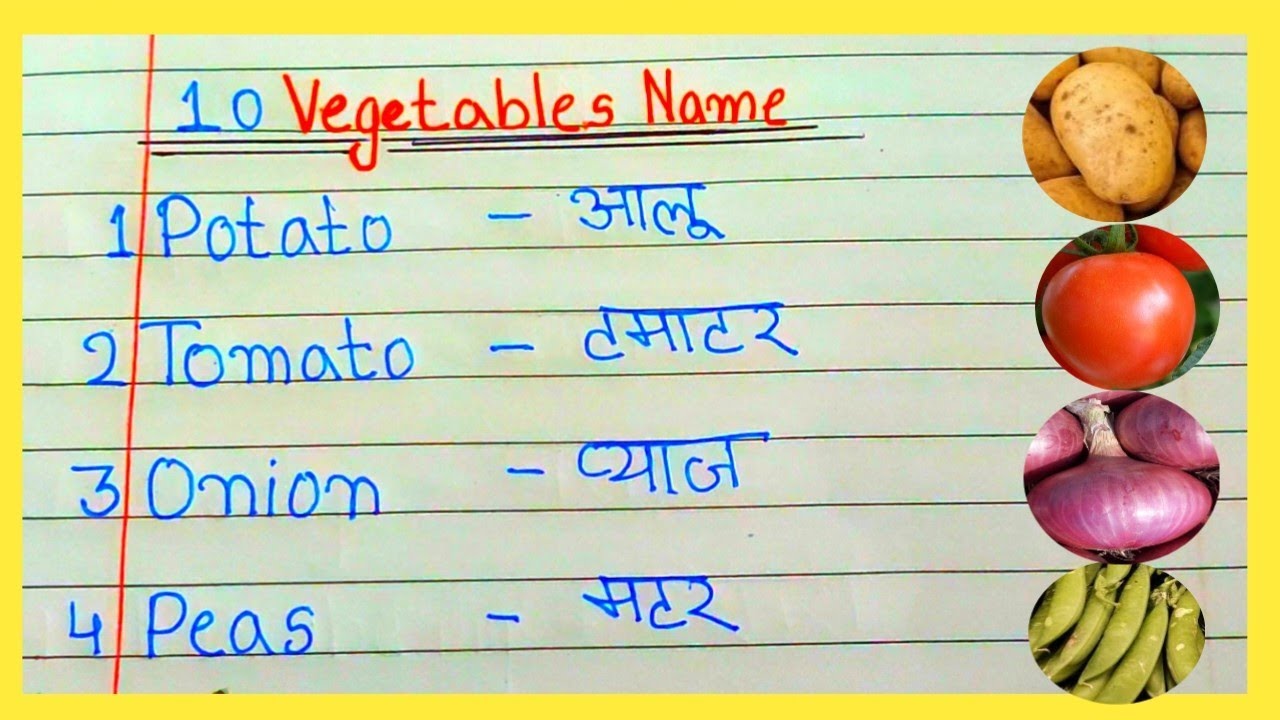 10 Vegetables Name
1 Potato - आलू
2 Tomato - टमाटर
3 Onion - प्याज
4 Peas - मटर